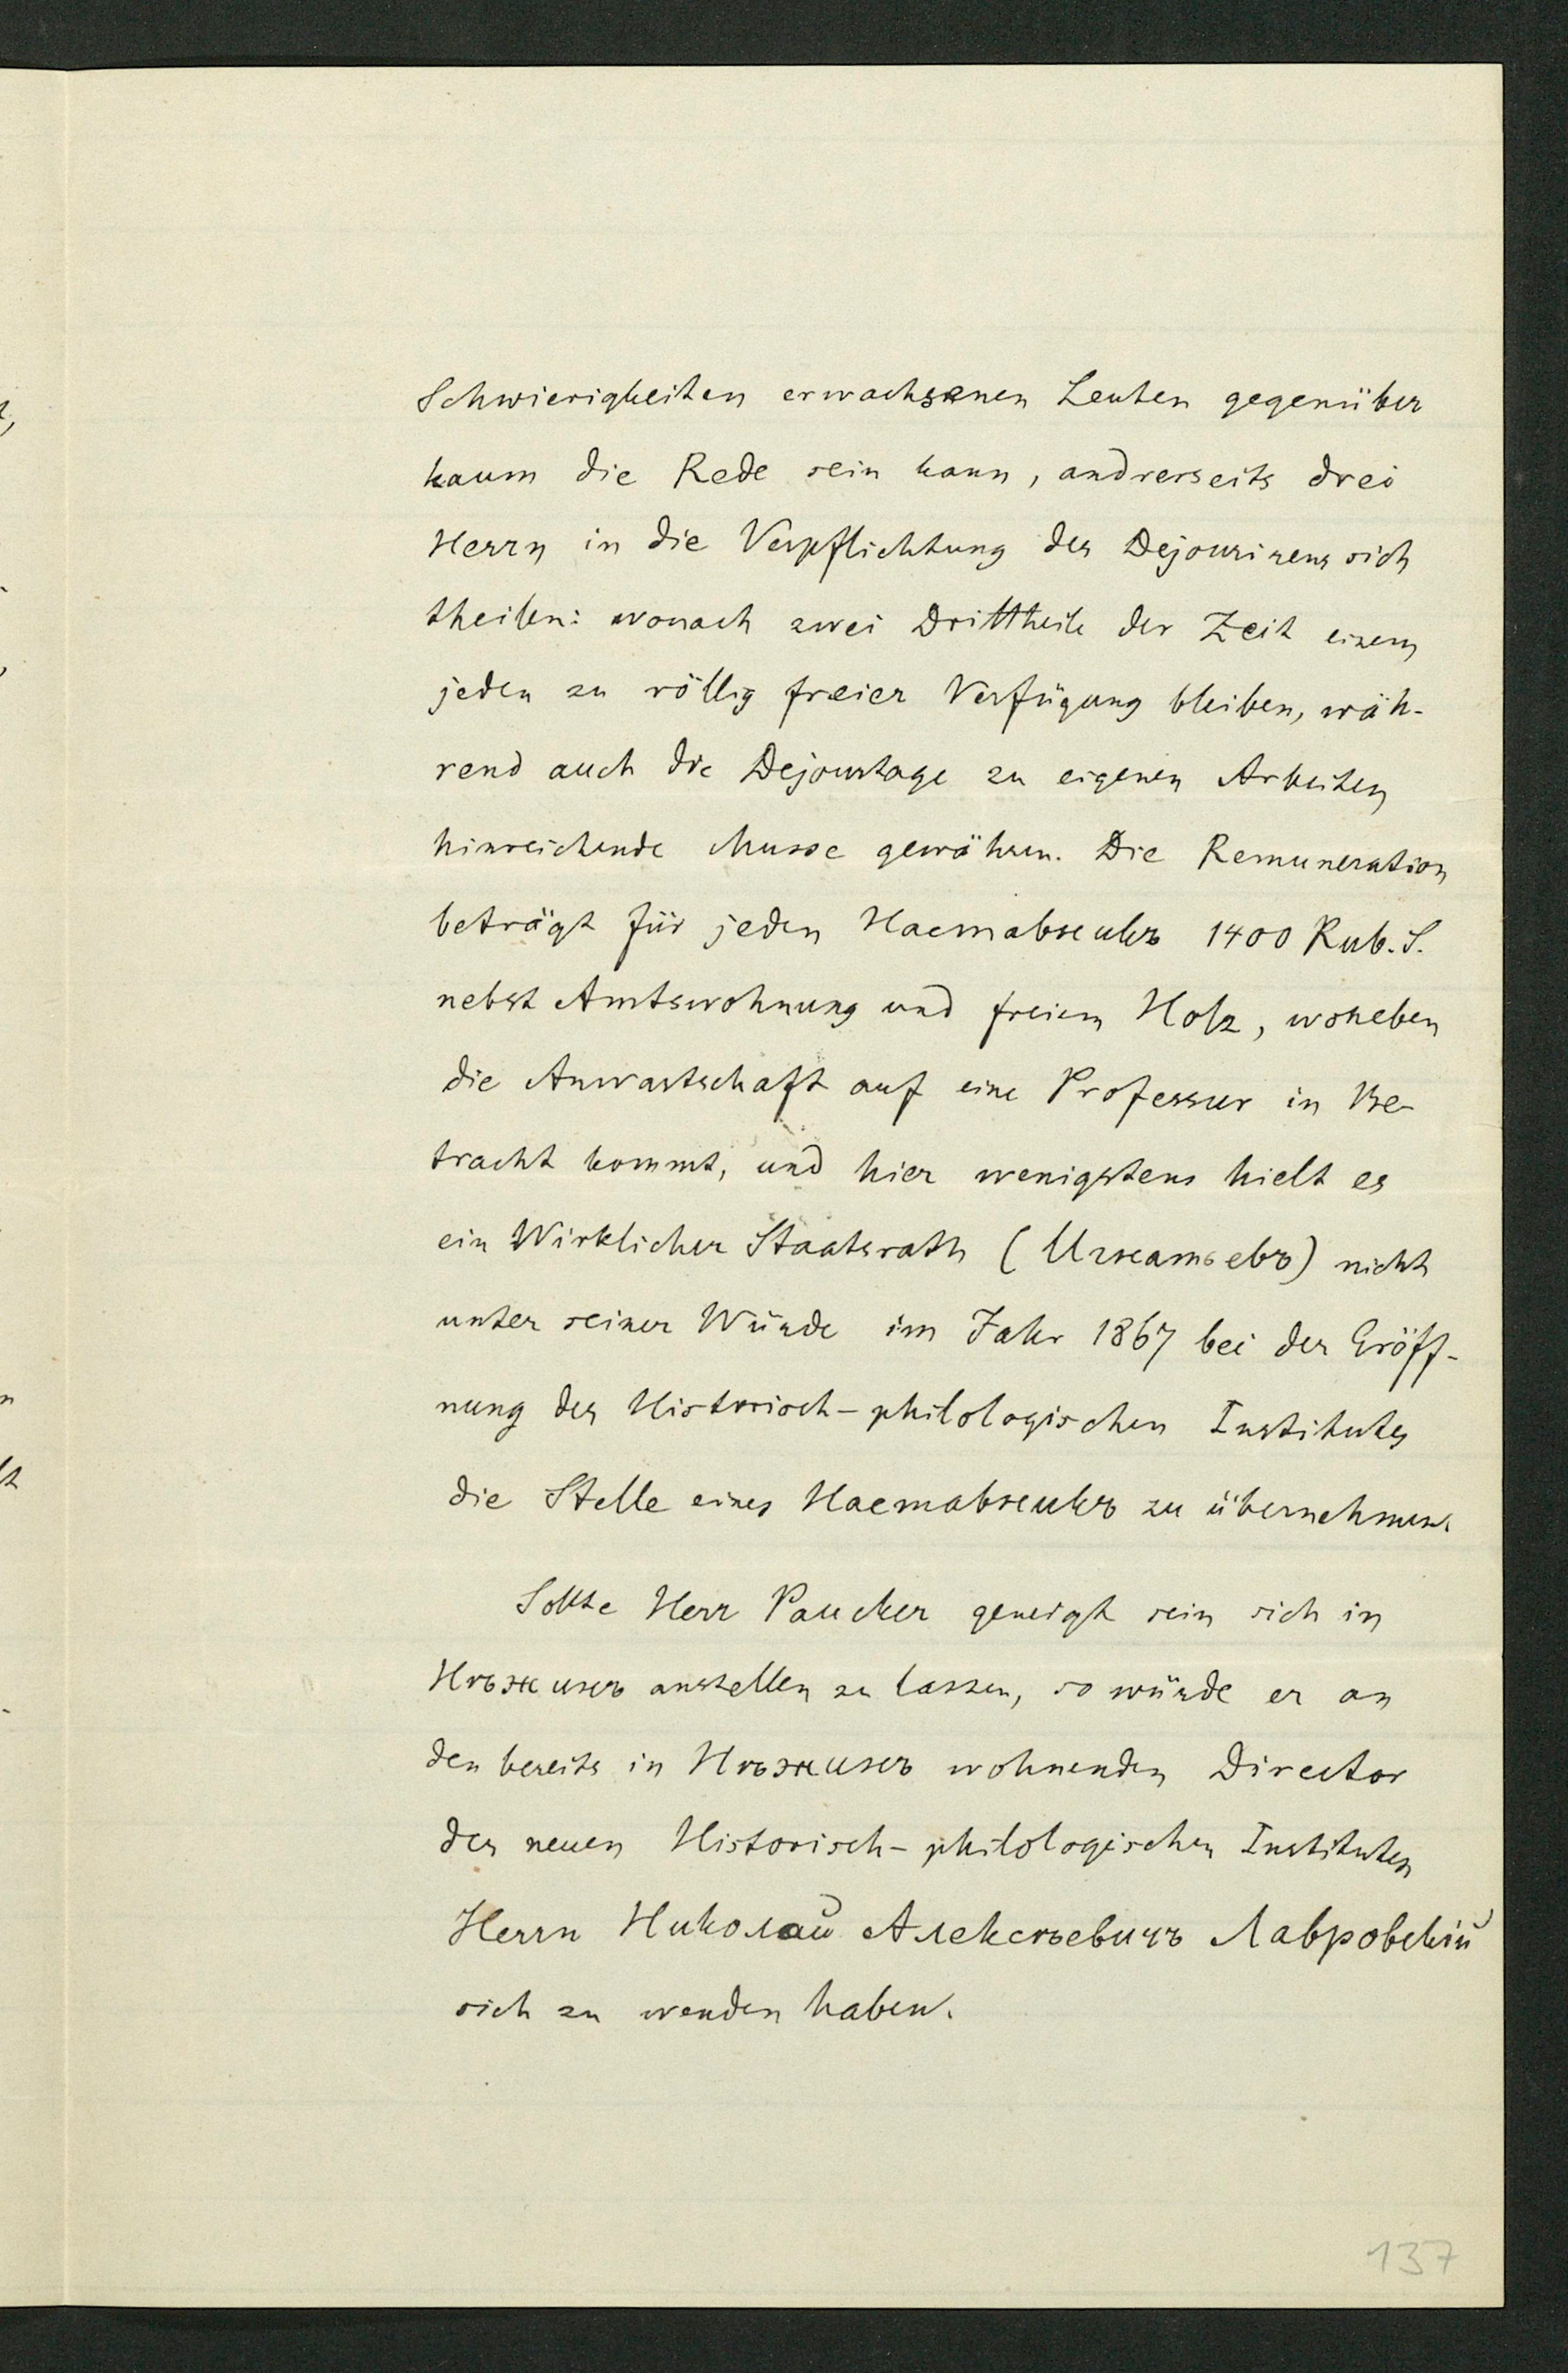 Schwierigkeiten erwachsenen Leuten gegenüber
kaum die Rede sein kann, andrerseits drei
Herrn in die Verpflichtung des Dejourirens sich
theilen: wonach zwei Drittheile der Zeit einem
jeden zu völlig freier Verfügung bleiben, wäh-
rend auch die Dejourtage zu eigenen Arbeiten
hinreichende Musse gewähren. Die Remuneration
beträgt für jeden Наставникъ 1400 Rub. S.
nebst Amtswohnung und freiem Holz, woneben
die Anwartschaft auf eine Professur in Be-
tracht kommt, und hier wenigstens hielt es
ein Wirklicher Staatsrath (Игнатьевъ) nicht
unter seiner Würde im Jahr 1867 bei der Eröff-
nung des Historisch-philologischen Institutes
die Stelle eines Наставникъ zu übernehmen.
Sollte Herr Paucker geneigt sein sich in
Нѣжинъ anstellen zu lassen, so würde er an
den bereits in Нѣжинъ wohnenden Director
des neuen Historisch-philologischen Institutes
Herrn Николай Алексѣевичъ Лавровскій
sich zu wenden haben.
137